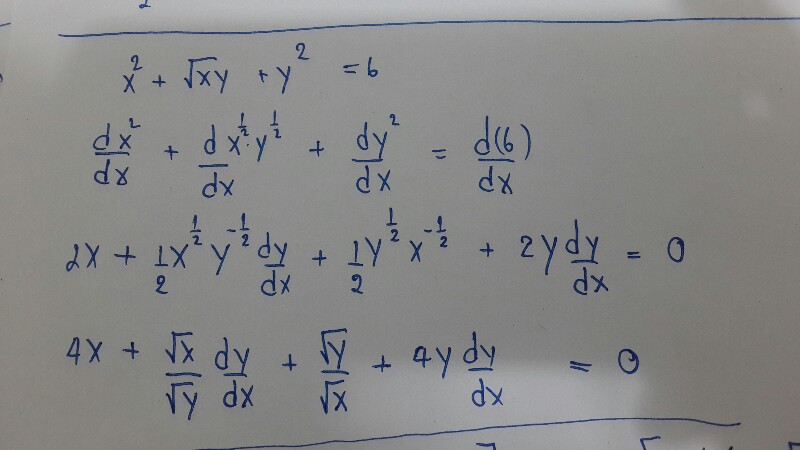 x² + √xy + y² = 6
dx²/dx + d/dx x^½·y^½ + dy²/dx = d(6)/dx
2x + ½x^½ y^-½ dy/dx + ½y^½ x^-½ + 2y dy/dx = 0
4x + √x/√y dy/dx + √y/√x + 4y dy/dx = 0